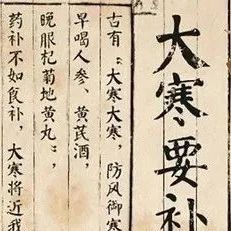 大寒要补
古有：“大寒大寒，防风御寒
早喝人参、黄芪酒，
晚服杞菊地黄丸”，
药补不如食补，大寒将近我